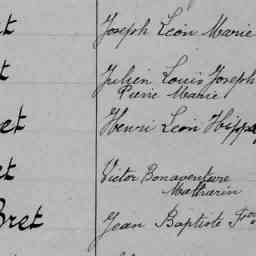 Joseph Léon Marie
Julien Louis Joseph
Pierre Marie
Henri Léon
Victor Bonaventure
Mathurin
Bret Jean Baptiste